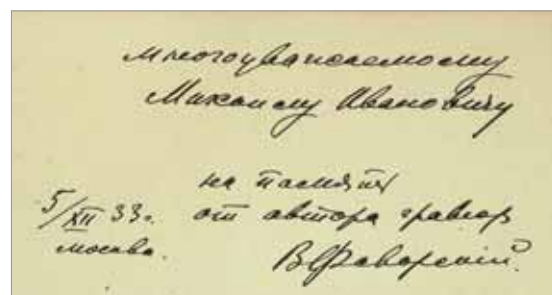 многоуважаемому
Михаилу Ивановичу
на память
5/XII 33г. от автора гравюр
Москва. ВФаворский.